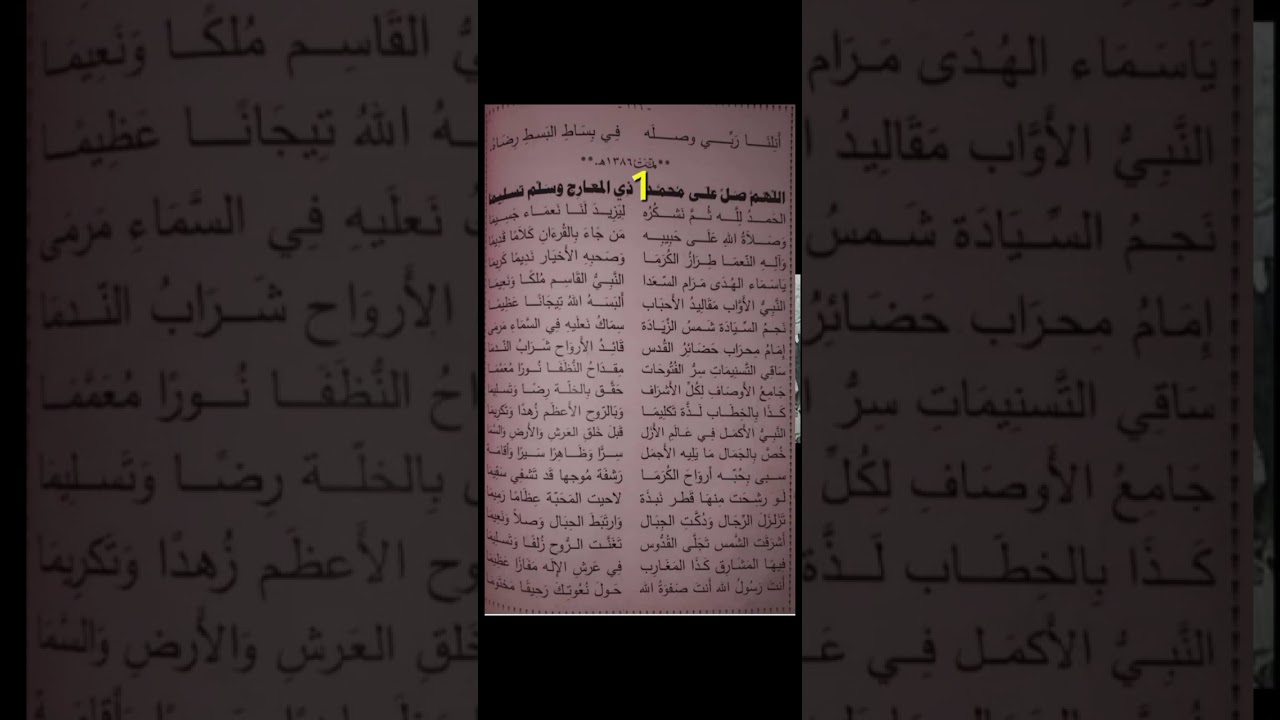 - ١١٦ -
أَنِلْنَا رَبِّي وصله في بِسَاطِ البَسطِ رِضَاهُ
** تمت ١٣٨٦هـ **
1
اللهم صل على محمد ذي المعارج وسلم تسليما
الحَمدُ لِلَّه ثُمَّ نَشكُرُه لِيَزِيدَ لَنَا نَعمَاء جَسِيمَا
وَصَلاَةُ اللهِ عَلَى حَبِيبِه مَن جَاءَ بِالقُرءَانِ كَلاَمًا قَدِيمَا
وَآلِهِ النّعمَا طِرَازُ الكُرَمَا وَصَحبِهِ الأَخيَار نَدِيمًا كَرِيمَا
يَاسَمَاء الهُدَى مَرَام السّعَدا النَّبِيُّ القَاسِم مُلكًا وَنَعِيمَا
النَّبِيُّ الأَوَّاب مَقَالِيدُ الأَحبَاب أَلبَسَهُ اللهُ تِيجَانًا عَظِيمَا
نَجمُ السِّيَادَة شَمسُ الزِّيَادَة سِمَاكُ نَعلَيهِ فِي السَّمَاءِ مَرمَى
إِمَامُ مِحرَاب حَضَائِرُ القُدس قَائِدُ الأَروَاح شَرَابُ النّدمَا
سَاقِي التَّسنِيمَات سِرُّ الفُتُوحَات مِقدَاحُ النُّظَفَا نُورًا مُعَمَّمَا
جَامِعُ الأَوصَاف لِكُلِّ الأَشرَاف حَقَّق بِالخلَّة رِضًا وَتَسلِيمَا
كَذَا بِالخِطَاب لَذَّة تَكلِيمَا وَبِالرّوح الأَعظَم زُهدًا وَتَكرِيمَا
النَّبِيُّ الأَكمَل فِي عَالَمِ الأَزَل قَبلَ خَلقِ العَرشِ وَالأَرضِ وَالسَّمَا
خُصَّ بِالجَمَال مَا يَلِيه الأَجمَل سِرًّا وَظَاهِرًا سَيرًا وَأَقَامَة
سبى بِحُبِّه أروَاحَ الكُرَمَا رَشفَة مُوجهَا قَد تَشفِي سَقِيمَا
لو رشِحَت مِنهَا قَطر نَبذَة لاحيت المَحَبّة عِظَامًا رَمِيمَا
تَزَلزَلَ الرِّجَال وَدُكَّتِ الجِبَال وَارتَبَطَ الحِبَال وَصلاً وَنَعِيمَا
أَشرَقَت الشَّمس تَجَلَّى القُدُّوس تَغَنَّت الرُّوح زُلفَا وَتَسلِيمَا
فِيهَا المَشَارِق كَذَا المَغَارِب فِي عَرشِ الإِلَه مَفَازًا عَظِيمَا
أَنتَ رَسُولُ الله أَنتَ صَفوَةُ الله حَولَ نُعُوتِكَ رَحِيقًا مَختُومَا